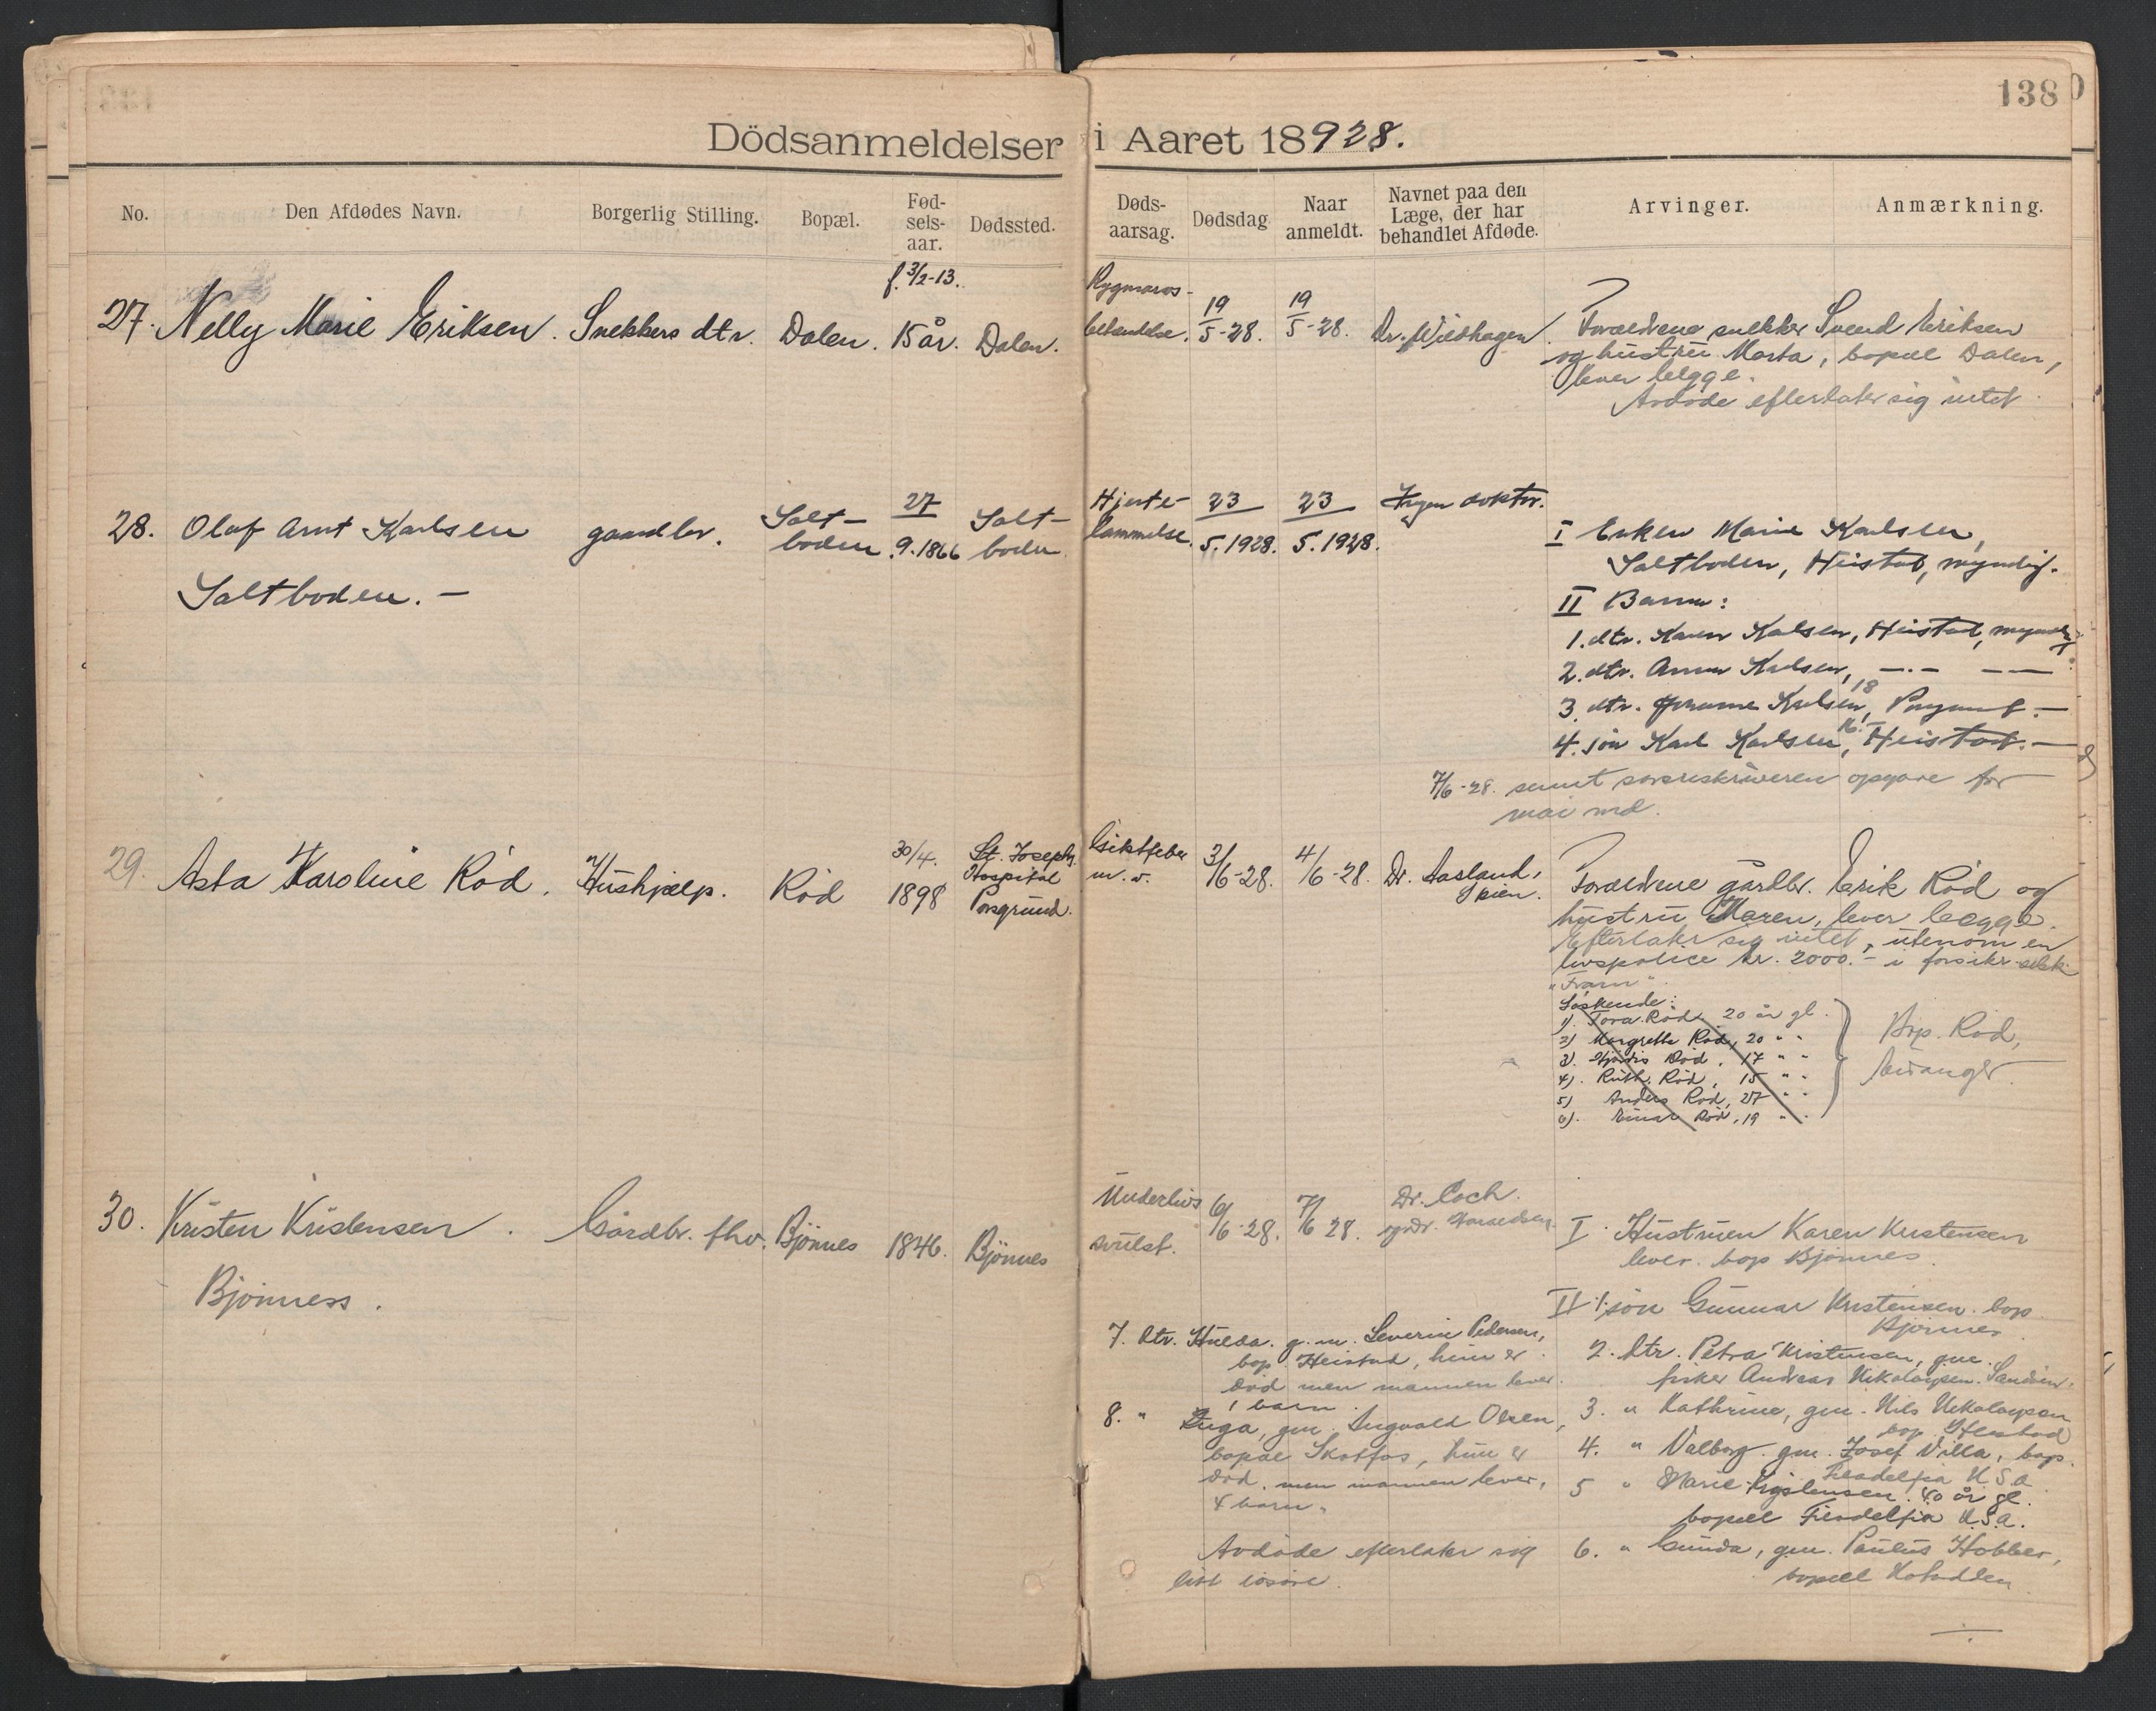 138
Dödsanmeldelser i Aaret 18928.
No. Den Afdødes Navn. Borgerlig Stilling. Bopæl. Fød-sels-aar. Dødssted. Døds-aarsag. Dødsdag Naar anmeldt. Navnet paa den Læge, der har behandlet Afdøde. Arvinger. Anmærkning.
f. 3/2-13.
27. Nelly Marie Eriksen. Snekkers dtr. Dalen. 15 år. Dalen.
Rygmarvs-
betændelse. 19/5-28. 19/5-28. Dr. Wildhagen.
Forældrene snekker Svend Eriksen
og hustru Marta, bopæl Dalen,
lever begge.
Avdøde efterlater sig intet.
28. Olaf Arnt Karlsen gaardbr. Salt-boden 27/9.1866 Salt-boden
Saltboden. —
Hjerte-
lammelse. 23/5.1928. 23/5.1928. Ingen doktor.
I Enken Marie Karlsen,
Saltboden, Heistad, myndig.
II Barn:
1. dtr. Karen Kalsen, Heistad, myndig
2. dtr. Anna Karlsen, —.— ——
3. dtr. Karlsen, 18
4. søn Karl Karlsen, 16 Heistad. —
7/6-28. sendt sorenskriveren opgave for
mai md.
29. Asta Karoline Rød. Hushjælp. Rød 30/4. 1898 St. Josephs Hospital Porsgrund.
Giktfeber
m. v. 3/6-28. 4/6-28. Dr. Aasland, Skien.
Forældrene gårdbr. Erik Rød og
hustru Maren, lever begge.
Efterlater sig intet, utenom en
livspolice kr. 2000.- i forsikr. selsk.
"Fram"
Søskende:
1). Tora Rød, 20 år gl.
2) Margrethe Rød, 20 " "
3). Hjördis Rød, 17 " "
4). Ruth Rød, 15 " "
5) Anders Rød, 27 " "
6). Einar Rød, 19 " "
Bop. Rød,
Eidanger.
30. Kristen Kristensen. Gårdbr. fhv. Bjönnes 1846. Bjönnes
Bjönness.
Underlivs
svulst. 6/6-28. 7/6 28. Dr. Coch.
I. Hustruen Karen Kristensen
lever. bop Bjönnes.
II 1. søn Gunnar Kristensen. bop
Bjönnes.
2. Dtr. Petra Kristensen, gm.
fisker Andreas Nikolaysen. Sandøen.
3. " Kathrine, gm. Nils Nikolaysen
bop Heistad
4. " Valborg gm. Josef Villa, bop.
Filadelfia U S A
5 " Marie Kristensen. 40 år gl.
bopæl Filadelfia U.S.A.
6. " Gunda, gm. Paulus
bopæl Notodden
7. Dtr. Hulda. g. m. Severin Pedersen,
bop. Heistad, hun er
død men mannen lever.
1 barn.
8. " Inga, gm. Ingvald Olsen,
bopæl Skotfos, hun er
død, men mannen lever,
4 barn.
Avdøde efterlater sig
litt løsøre.